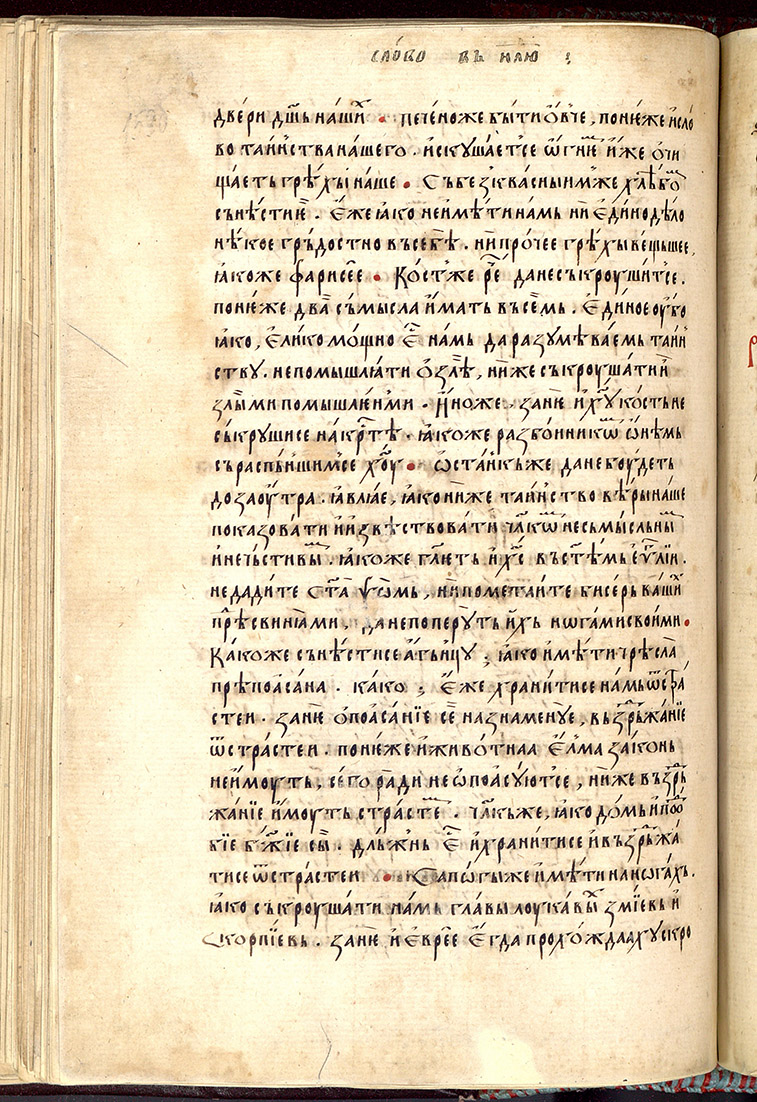 сло́во въ нл҃ю :
двери дш҃ь на́ши • пече́ноже бы́ти ѻ҆́вче , поне́же и҆ сло́
во та́инства на́шего . и҆скуша́етсе ѿ гнѥ҃ и҆́же ѡ҆чи
ща́еть грѣ́хы на́ше • Съ безква́сныим же хлѣ́бѡⷨ
сънѣ́стиѥ . є҆́же ꙗ҆́ко неимѣ́ти на́мь ни є҆ди́но дѣ́ло
нѣ́кое гръ́достно въ се́бѣ . ни про́чее грѣ́хы ве́щьшее ,
ꙗ҆́коже фарисе́є • Ко́ст же рѐⷱ да не съкроу́шитсе .
поне́же два̀ съ́мысла и҆́мать въ се́мь . є҆ди́ное оу҆́бо
ꙗ҆́ко , є҆ли́ко мо́щно є҆ⷭ҇ на́мь да разумѣ́ваемь та́ин
ству . не помышлꙗ́ти ѻ҆ злѣ̀ , ни́же съкроуша́ти ѝ
злы́ми помышле́нїими . и҆́ноже . занѥ̀ и҆ хв҃оу ко́сть не
съкру́шисе на крⷭ҇тѣ . ꙗ҆́коже разбо́йникѡⷨ ѡ҆ не́мь
съ распе́ншимсе хо҃у • ѡ҆ста́нкь же да не боу́деть
до заоу́тра . ꙗ҆влꙗ́е , ꙗ҆́ко ни́же та́инство вѣ́ры на́ше
показова́ти и҆ и҆звѣ́ствовати чл҃кѡⷨ несъмы́сльныⷨ
и҆ нечь́стивыⷨ . ꙗ҆́коже гл҃еть и҆ хс҃ въ ст҃ѣмь є҆ѵⷢ҇лїи .
не дади́те ст҃а̀ ѱѡ́мь , ни помета́ите би́серь ва́ши
прѣⷣ свинїа́ми , да не поперу́ть и҆́хь нога́ми свои́ми •
Ка́коже снѣ́стисе а҆́гньцу ; ꙗ҆́ко и҆мѣ́ти чрѣ́сла
прѣпоа́сана . ка́ко ; є҆́же храни́тисе на́мь ѿ стра́
стеи . занѥ̀ ѻ҆поа́санїе сѐ назнаменꙋ́е , въздръ́жанїе
ѿ стра́стеи . поне́же и҆ живо́тнаа є҆́лма зако́нь
неи҆́моуть , се́го ра́ди не ѡ҆поасу́ютсе , ни́же въздръ
жа́нїе и҆́моуть стра́стеⷨ . чл҃кь же , ꙗ҆́ко до́мь и҆ подо́
бїе бж҃їе сы̀ . длъ́жнь є҆ⷭ҇ и҆ храни́тисе и҆ въздръжа́
тисе ѿ стра́стеи • Сапо́гы же и҆мѣ́ти на нога́хь .
ꙗ҆́ко съкроуша́ти на́мь гла́вы лоука́выⷯ змїе́вь и҆
скорпїе́вь . занѥ̀ и҆ є҆вре́є є҆гда̀ прохо́ждаахꙋ скро